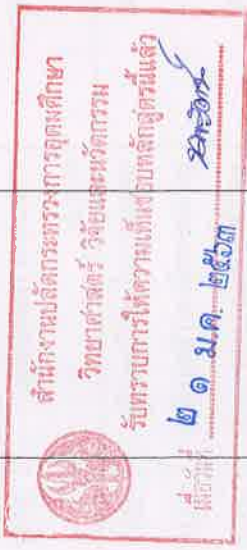 สำนักงานปลัดกระทรวงการอุดมศึกษา
วิทยาศาสตร์ วิจัยและนวัตกรรม
รับทราบการให้ความเห็นชอบหลักสูตรนี้แล้ว
เมื่อวันที่ ๒๑ ม.ค. ๒๕๖๓